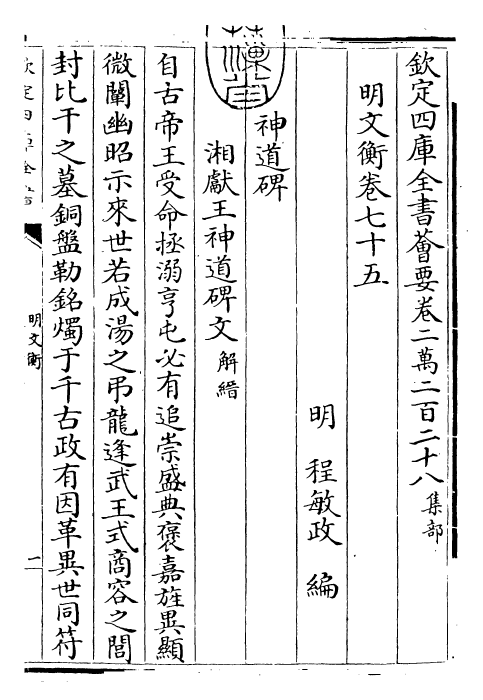 欽定四庫全書薈要卷二萬二百二十八集部
明文衡卷七十五
明 程敏政 編
神道碑
湘獻王神道碑文解縉
自古帝王受命拯溺亨屯必有追崇盛典褒嘉旌異顯
微闡幽昭示來世若成湯之弔龍逢武王式商容之閭
封比干之墓銅盤勒銘燭于千古政有因革異世同符
欽定四庫全書
明文衡
一